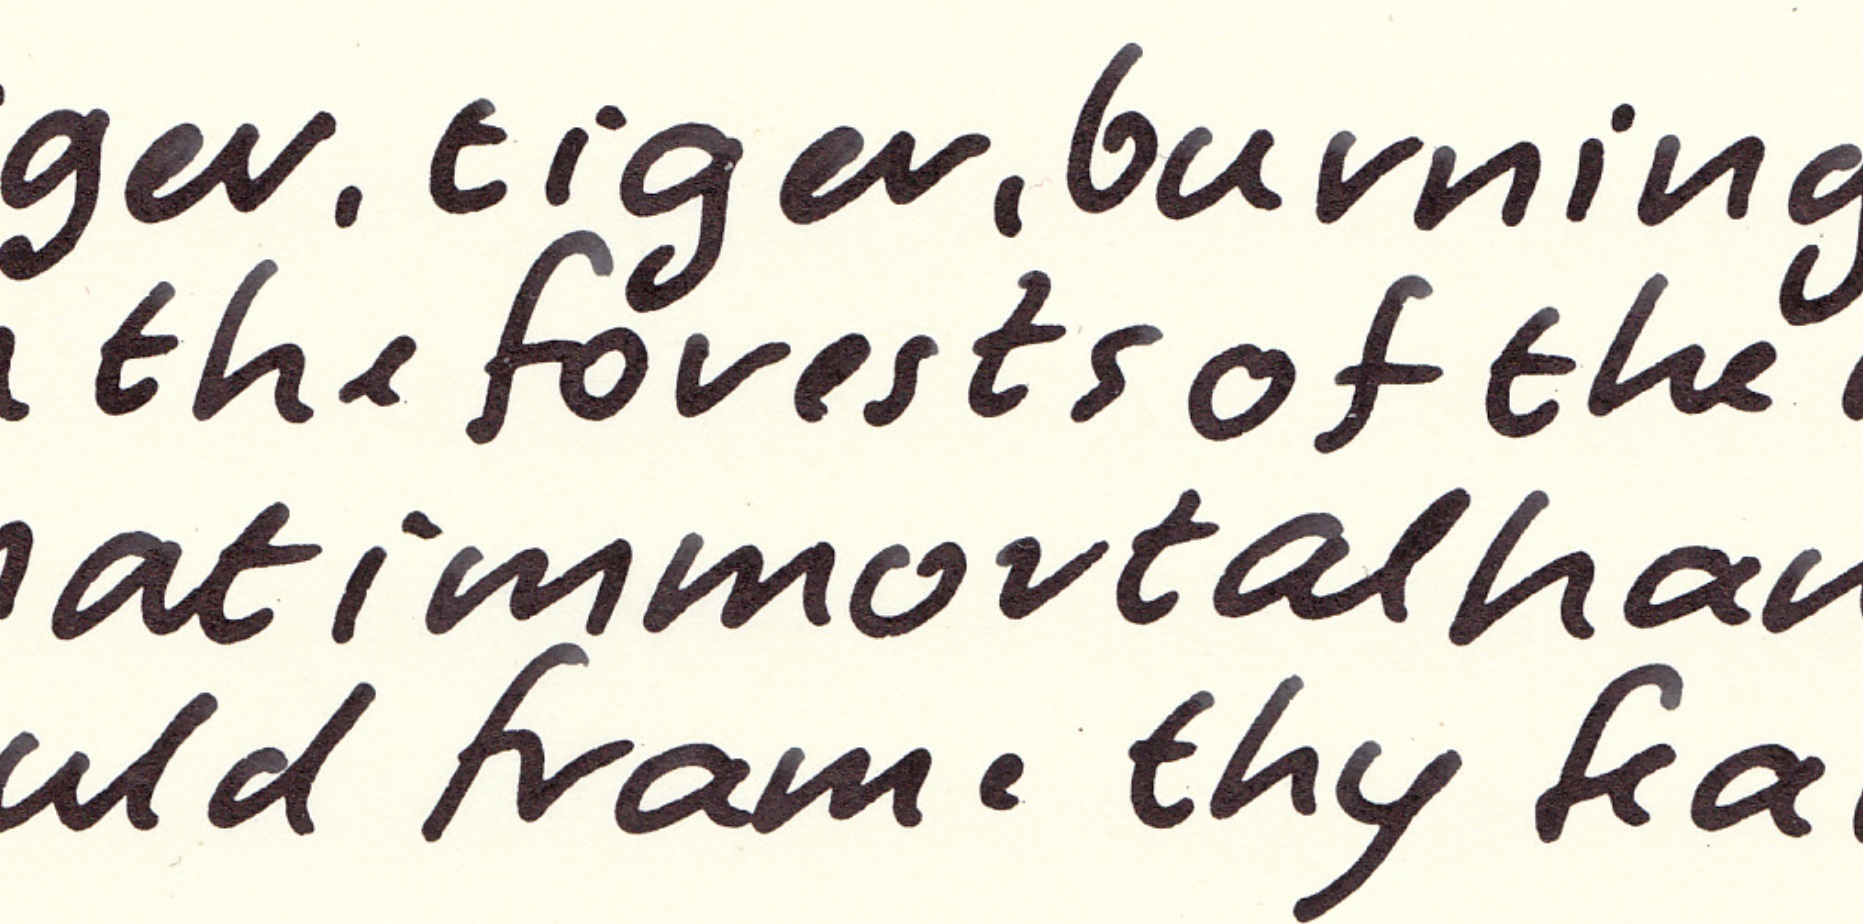 iger, tiger, burning
n the forests of the
hat immortal han
uld frame thy fea